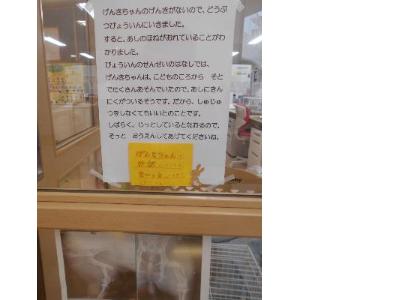 げんきちゃんのげんきがないので、どうぶ
つびょういんにいきました。
すると、あしのほねがおれていることがわ
かりました。
びょういんのせんせいのはなしでは、
げんきちゃんは、こどものころから　そと
でたくさんあそんでいたので、あしにきん
にくがついるそうです。だから、しゅじゅ
つをしなくてもいいとのことです。
しばらく、じっとしているとなおるので、
そっと　おうえんしてあげてくださいね。
げんきちゃん